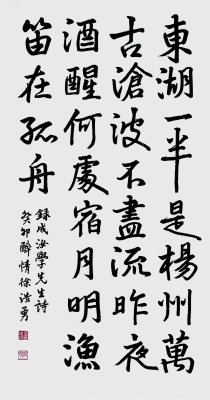 東湖一半是楊州萬
古滄波不盡流昨夜
酒醒何處宿月明漁
笛在孤舟
錄成汝學先生詩
癸卯醉情徐浩勇